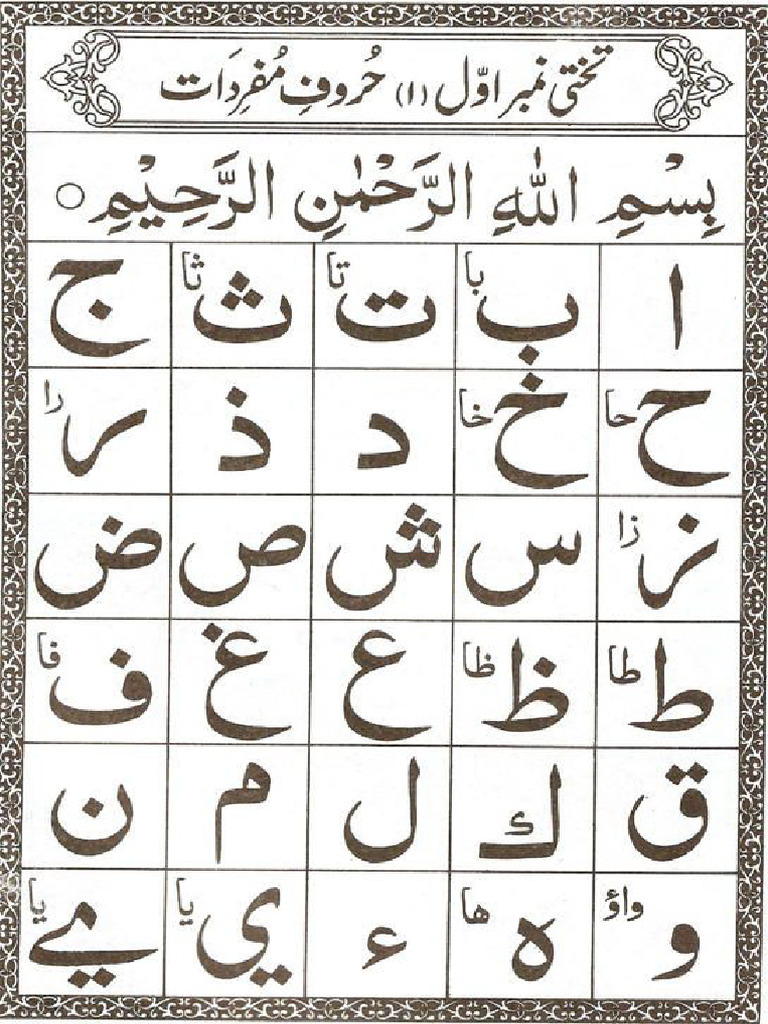 تختی نمبر اوّل (۱) حُروفِ مُفرِدَات
بِسْمِ اللّٰهِ الرَّحْمٰنِ الرَّحِيْمِ ○
ا ب با ت تا ث ثا ج
ح حا خ خا د ذ ر را
ز زا س ش ص ض
ط طا ظ ظا ع غ ف فا
ق ك ل م ن
و واؤ ه ها ء ي يا ے يا